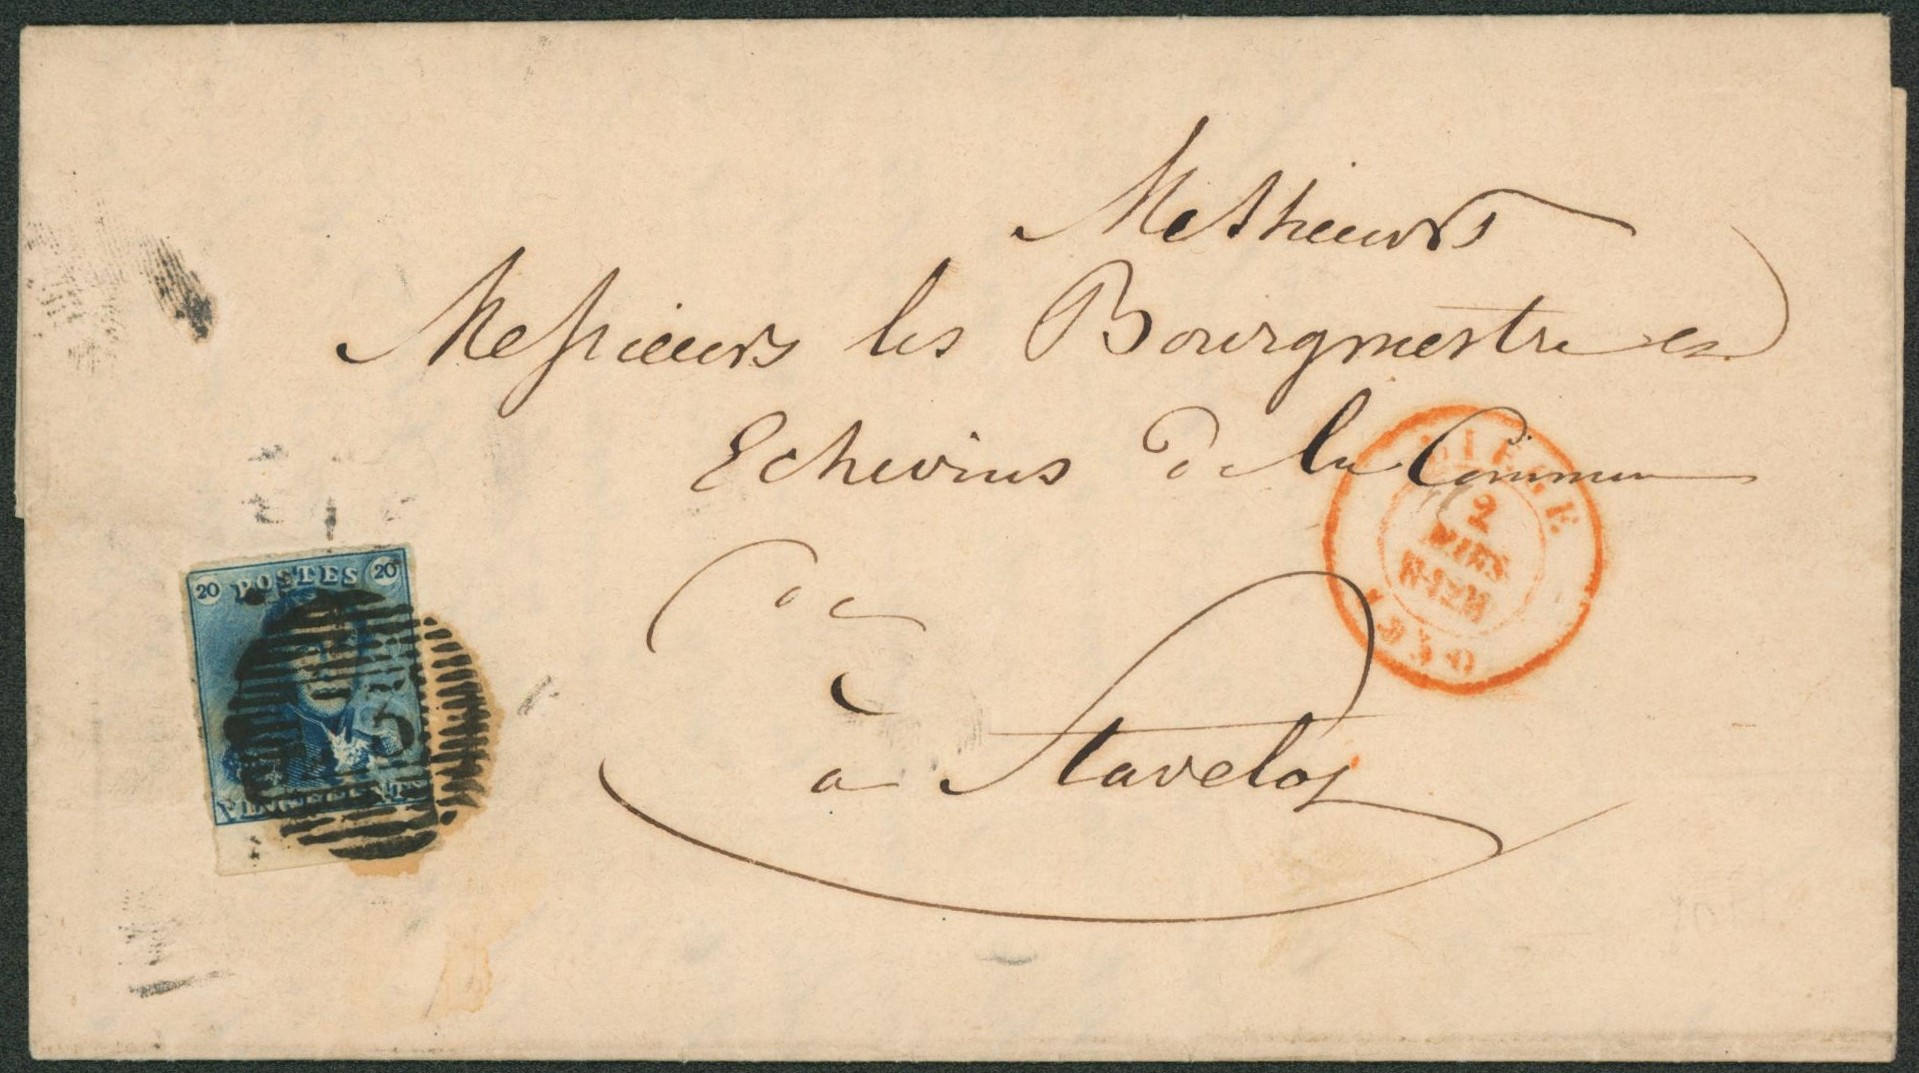 Messieurs
Messieurs les Bourgmestre et
Echevins de la Commune
de
à Stavelot
20 POSTES 20
VINGT CENTS
LIÉGE
2
MARS
1850